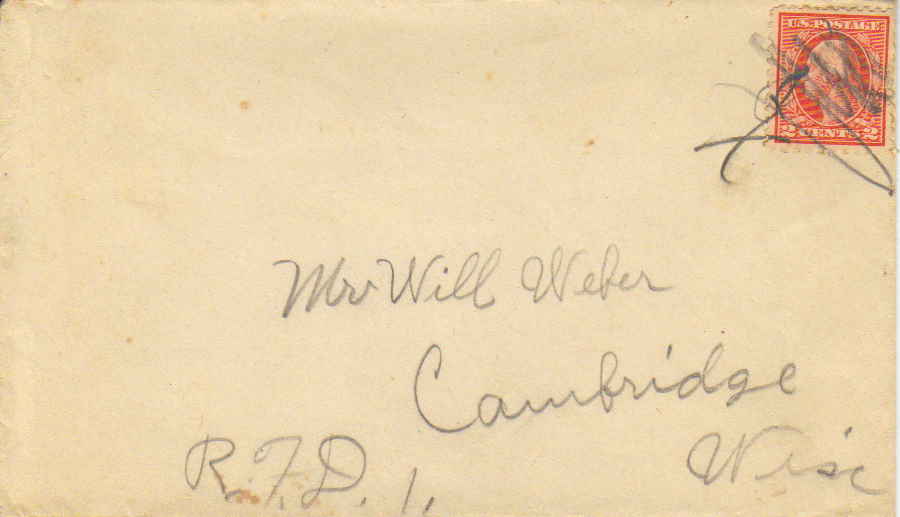 U.S. POSTAGE
2 CENTS 2
Mr Will Weber
Cambridge
R.F.D. 1. Wisc